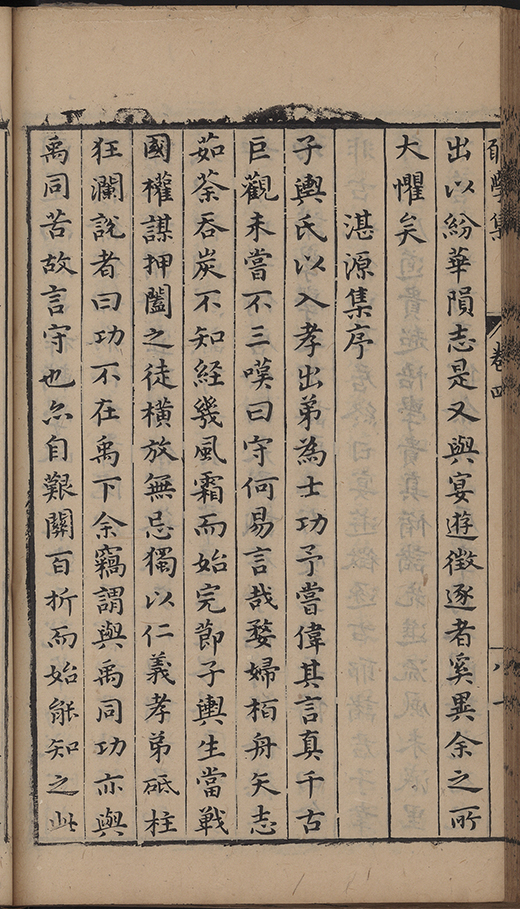 學集 卷四
出以紛華隕志是又與宴遊徵逐者奚異余之所
大懼矣
湛源集序
子輿氏以入孝出弟為士功予嘗偉其言真千古
巨觀未嘗不三嘆曰守何易言哉嫠婦栢舟矢志
茹荼吞炭不知經幾風霜而始完節子輿生當戰
國權謀押闔之徒橫放無忌獨以仁義孝弟砥柱
狂瀾說者曰功不在禹下余竊謂與禹同功亦與
禹同苦故言守也尒自艱關百折而始能知之此